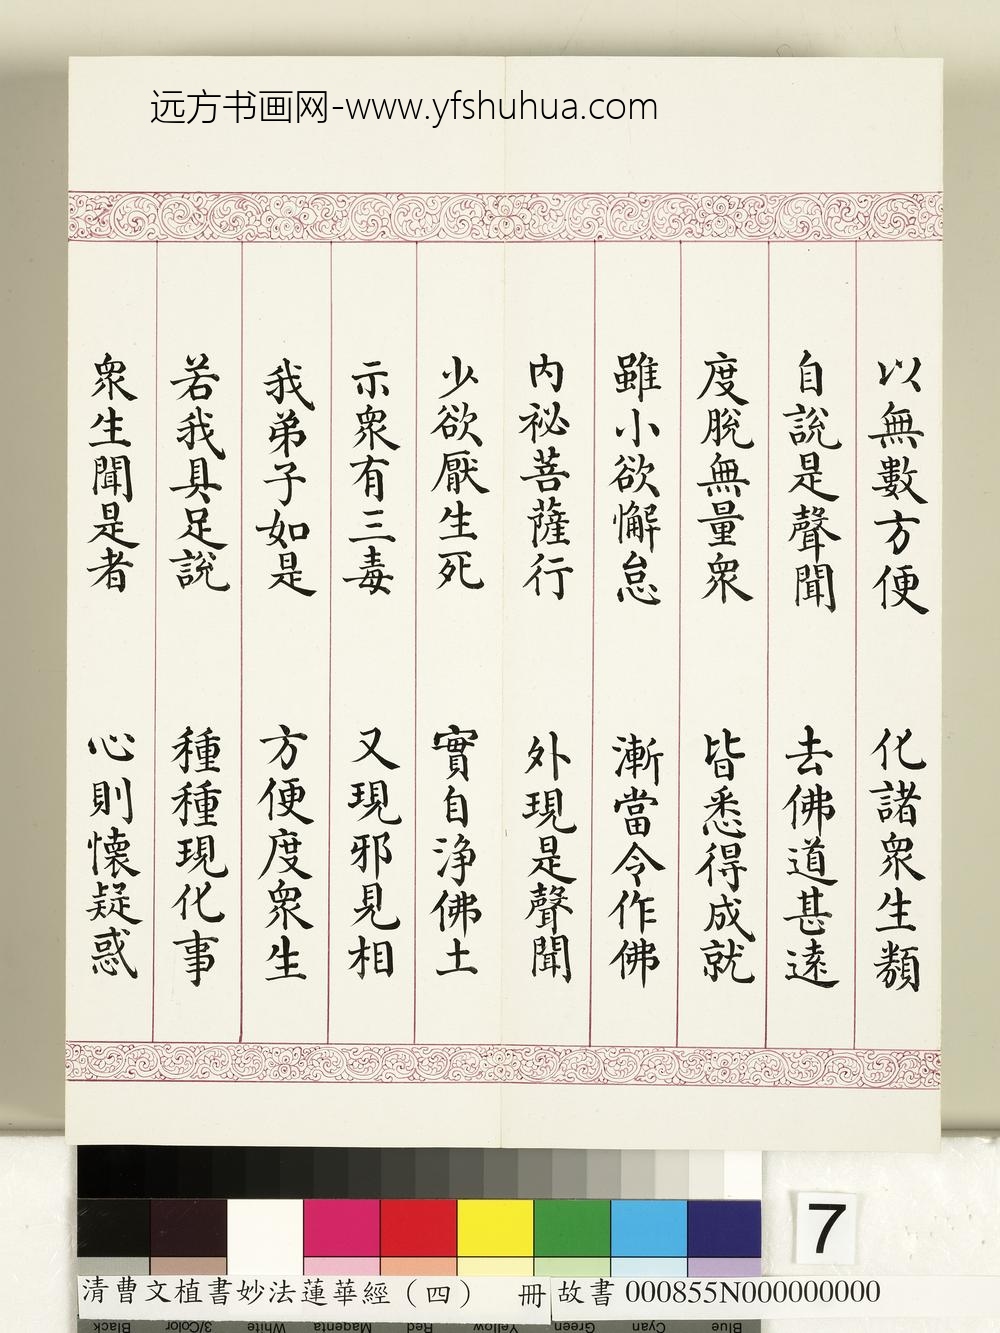 远方书画网-www.yfshuhua.com
以無數方便 化諸衆生類
自說是聲聞 去佛道甚遠
度脫無量衆 皆悉得成就
雖小欲懈怠 漸當令作佛
内祕菩薩行 外現是聲聞
少欲厭生死 實自浄佛土
示衆有三毒 又現邪見相
我弟子如是 方便度衆生
若我具足說 種種現化事
衆生聞是者 心則懐疑惑
7
清曹文植書妙法蓮華經（四） 冊 故書 000855N000000000
Black 3/Color White Magenta Red Yellow Green Cyan Blue